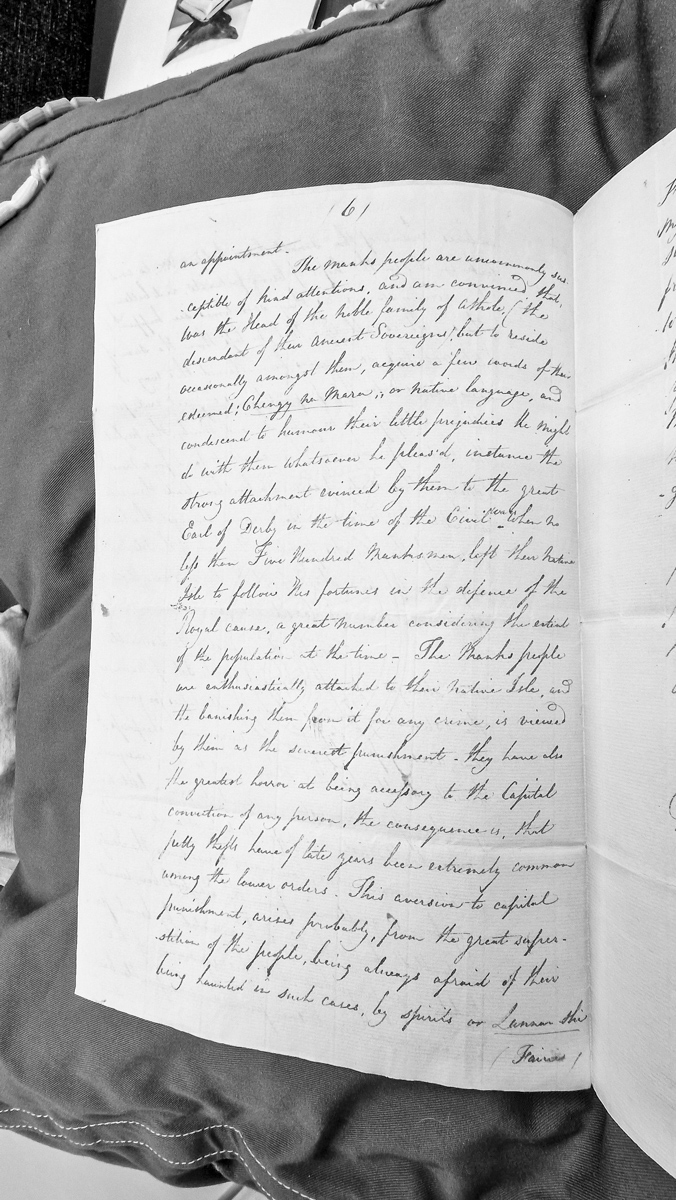 (6)
an appointment.
The Manks people are uncommonly sus-
-ceptible of kind attentions, and am convinced that,
was the Head of the noble family of Athole, (the
descendant of their ancient Sovereigns) but to reside
occasionally amongst them, acquire a few words of their
esteemed, Chengy na Mara, or native language, and
condescend to humour their little prejudices He might
do with them whatsoever he pleas'd, instance the
strong attachment evinced by them to the great
Earl of Derby in the time of the Civil wars When no
less then Five Hundred Manksmen, left their Native
Isle to follow His fortunes in the defence of the
Royal cause, a great number considering the extent
of the population at the time - The Manks people
are enthusiastically attached to their Native Isle, and
the banishing them from it for any crime, is viewed
by them as the severest punishment - they have also
the greatest horror at being accessory to the Capital
conviction of any person, the consequence is, that
petty thefts have of late years been extremely common
among the lower orders. This aversion to capital
punishment, arises probably, from the great super-
-stition of the people, being always afraid of their
being haunted in such cases, by spirits or Lannan shee
(Fairies)